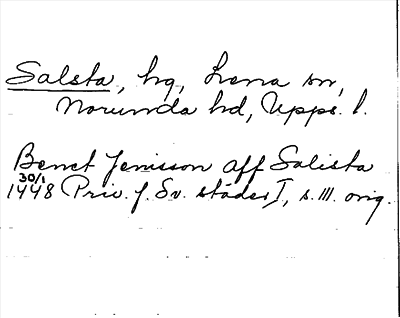 Salsta, hg, Lena sn,
Norunda hd, Upps. l.
Benct Jenisson aff Salista
30/1
1448 Priv. f. Sv. städer I, s. 111. orig.